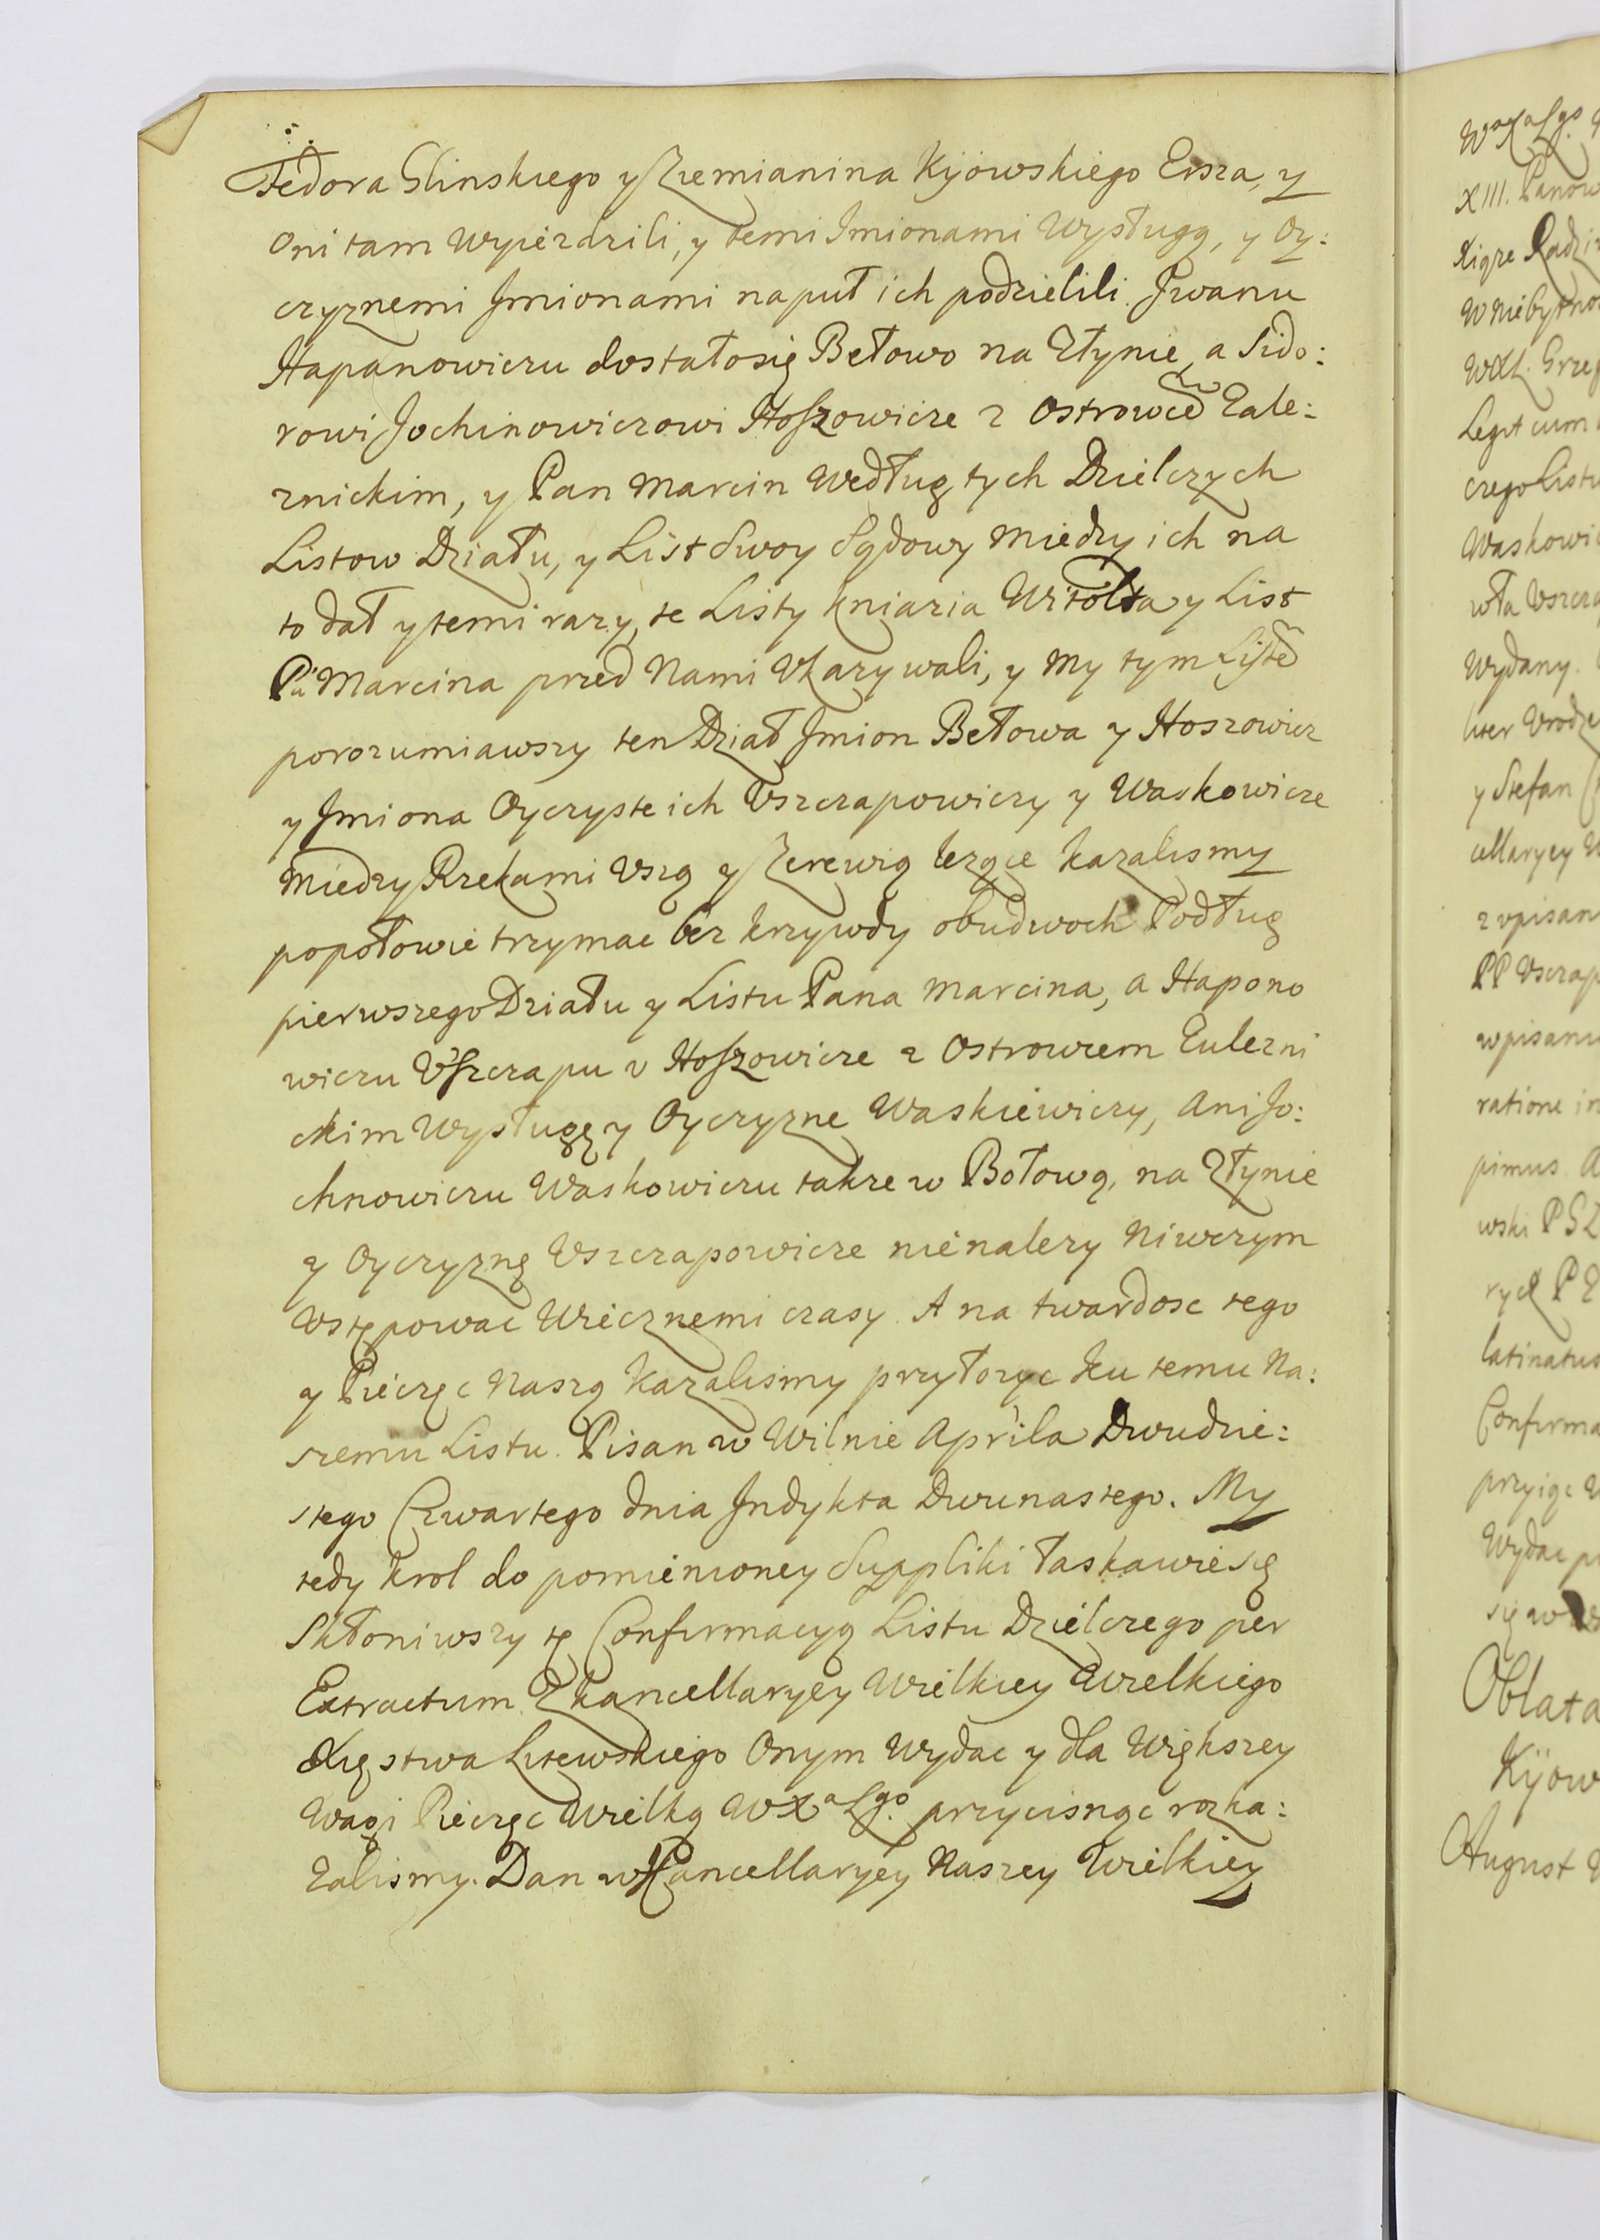 Fedora Glinskiego y Ziemianina Kijowskiego Ersza, y
Oni tam Wyieżdzili, y temi Imionami Wysługą, y Oy:
czyznemi Imionami na puł ich podzielili. Iwanu
Hapanowiczu dostałosię Bełowo na Złynie, a Sido:
rowi Jochinowiczowi Hoszowicze z Ostrowcē Zale:
znickim, y Pan Marcin Według tych Dzielczych
Listow Działu, y List Swoy Sądowy miedzy ich na
to dał y temi razy, te Listy kniazia Witolta y List
Pa Marcina przed Nami Ukazywali, y my tym Listē
porozumiawszy ten Dział Imion Bełowa y Hoszowicz
y Imiona Oyczyste ich Uszczapowiczy y Waskowicze
miedzy Rzekami Uszą y Zerewią lezące kazalismy
popołowie trzymac bez krzywdy obudwoch Podług
pierwszego Działu y Listu Pana Marcina, a Hapono
wiczu Uszczapu v Hoszowicze z Ostrowiem Eulezni
ckim Wysługę y Oyczyzne Waskiewiczy, Ani Jo:
chnowiczu Waskowiczu takze w Bołową, na Złynie
y Oyczyznę Uszczapowicze nienalezy Niwczym
Wstępowac Wiecznemi czasy. A na twardosc tego
y Pieczęc Naszą kazalismy przyłozyc ku temu Na:
szemu Listu. Pisan w Wilnie Aprila Dwudzie:
stego Czwartego dnia Indykta Dwunastego. My
tedy krol do pomienioney Suppliki łaskawie się
Skłoniwszy tę Confirmacyą Listu Dzielczego per
Extractum Zkancellaryey Wielkiey Wielkiego
Xięstwa Litewskiego Onym Wydac y dla Większey
Wagi Pieczęc Wielką WXa Lgo. przycisnąc rozka:
zalismy. Dan w Kancellaryey Naszey Wielkiey
WXa Lgo.
XIII. Panow
Xiąze Radzi
W Niebytnos
WXL. Grzeg
Legit cum
czego Listu
Waskowi
Wydany.
y Stefan
cellaryey
z vpisan
PP Uszczap
wpisanu
ratione in
pimus. A
wski PSZ
latinatus
Confirma
przyiąc
Wydac
się w
Oblata
Kijow
August